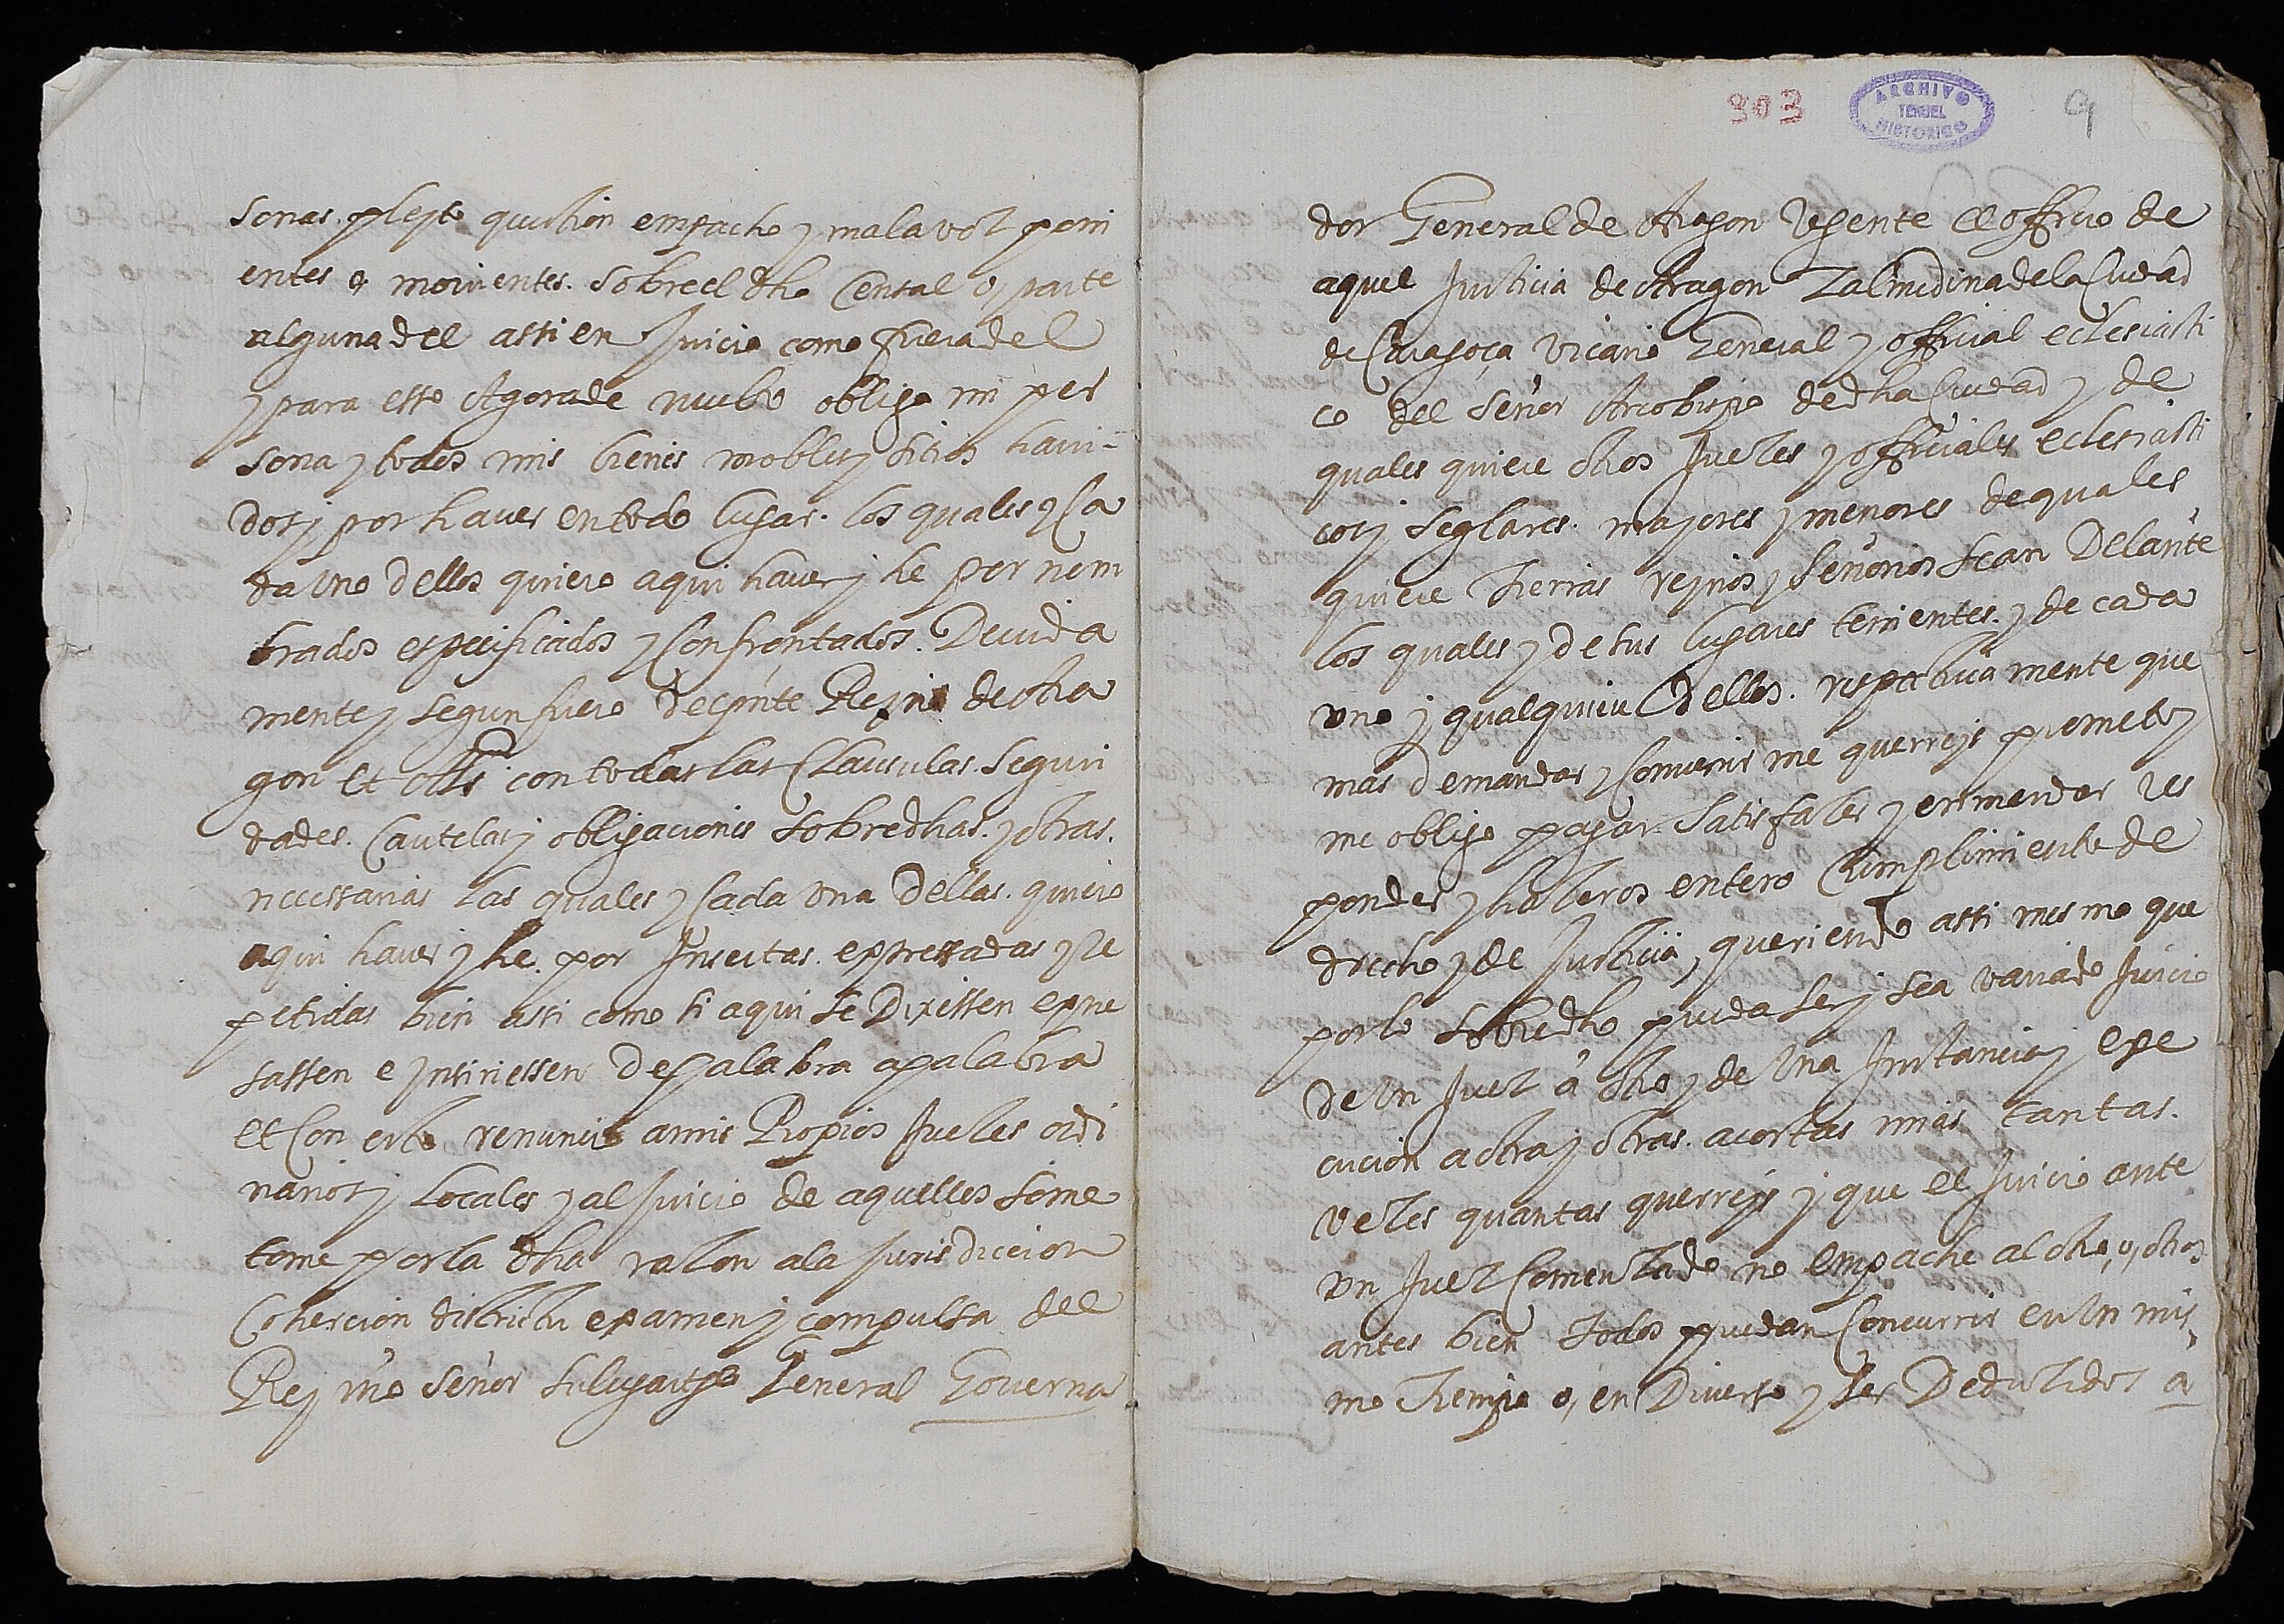 sonas. pleyto question empacho y mala voz poni
entes o, movientes. sobre el dho Censal o, parte
alguna del assi en Juicio como fuera del
y para esto Agora de nuebo obligo mi per
sona y todos mis bienes mobles y sitios havi-
dos y por haver en todo lugar. los quales y Ca
da Uno dellos quiero aqui haver y he por nom
brados especificados y Confrontados. Devida
mente y segun fuero del pnte Reyno de Ara
gon et con todas las Clausulas. Seguri
dades. Cautelas y obligaciones sobredhas. y otras.
necessarias Las quales y Cada Una Dellas. quiero
aqui haver y he. por Insertas. expressadas y Re
petidas bien assi como si aqui se Dixessen expre
sassen e ynsiriessen De palabra a palabra
et Con esto renuncio a mis Propios Juezes ordi
narios y Locales y al Juicio de aquellos some
tome por la dha razon a la Jurisdiccion
Cohercion districtu examen y compulsa del
Rey nro señor su lugartte General Governa
303
ARCHIVO
TERUEL
HISTORICO
9
dor General de Aragon Regente el officio de
aquel Justicia de Aragon Zalmedina de la Ciudad
de Caragoça Vicario General y official eclesiasti
co del señor Arcobispo de dha Ciudad y de
quales quiere otros Juezes y officiales eclesiasti
cos y seglares. mayores y menores de quales
quiere tierras reynos y señorios sean Delante
los quales y de sus lugares tenientes. y de cada
uno y qualquiere dellos. respectivamente que
mas demandar y Convenir me querreys prometo y
me obligo pagar satisfazer y enmendar res
ponder y hazeros entero Cumplimiento de
drecho y de Justicia, queriendo assi mesmo que
por lo sobredho pueda ser y sea variado Juicio
de Un Juez á otro y de Una Instancia y exe
cucion a otra y otras. a costas mias tantas.
vezes quantas querreys y que el Juicio ante
Un Juez Comenzado no empache al otro, o, otros
antes bien todos puedan Concurrir en Un mis
mo tiempo o, en Diverso y ser Deduzidos a